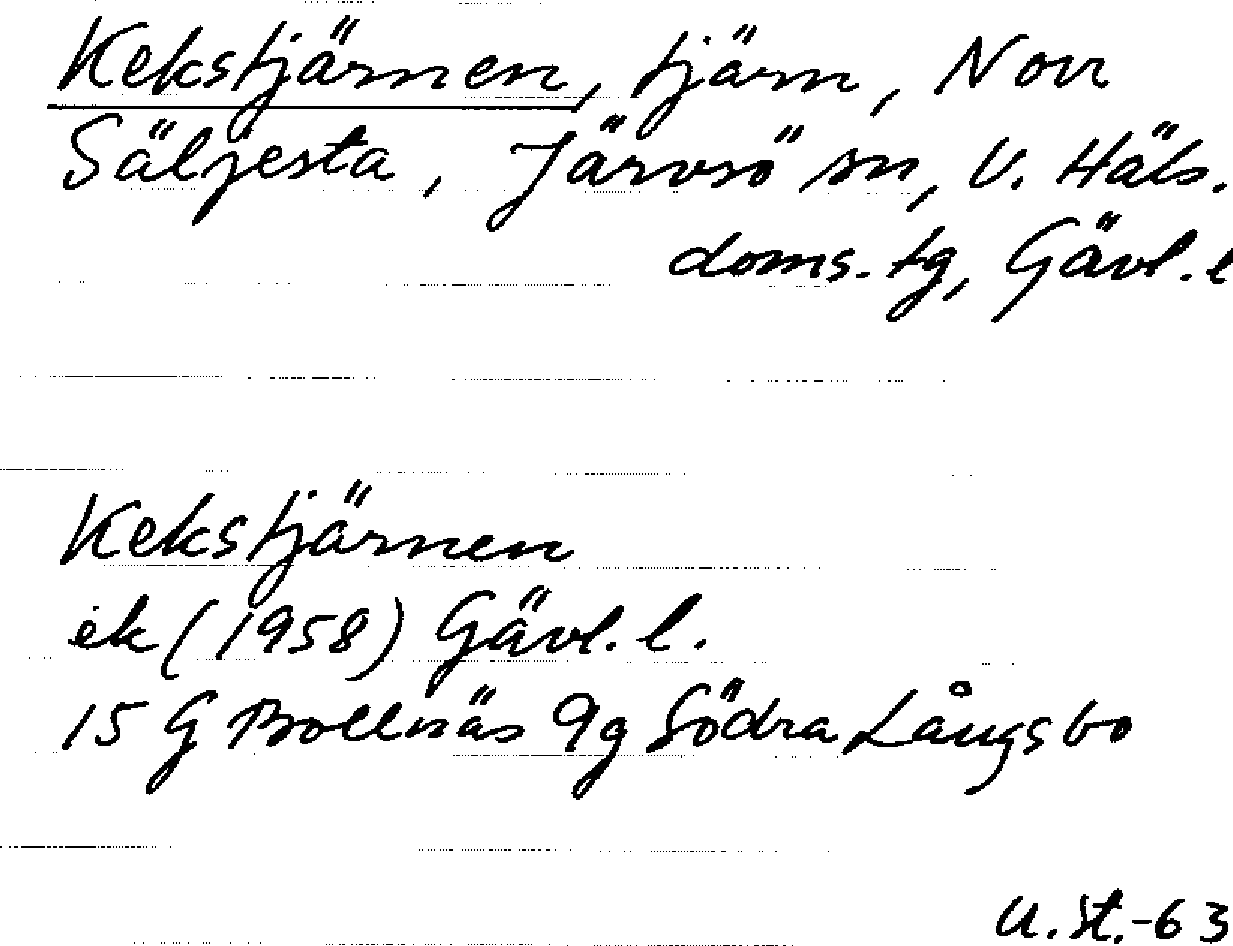 Kekstjärnen, tjärn, Norr
Säljesta, Järvsö sn, V. Häls.
doms. tg, Gävl. l
Kekstjärnen
ek (1958) Gävl. l.
15 G Bollnäs 9g Södra Långsbo
U.St.-63